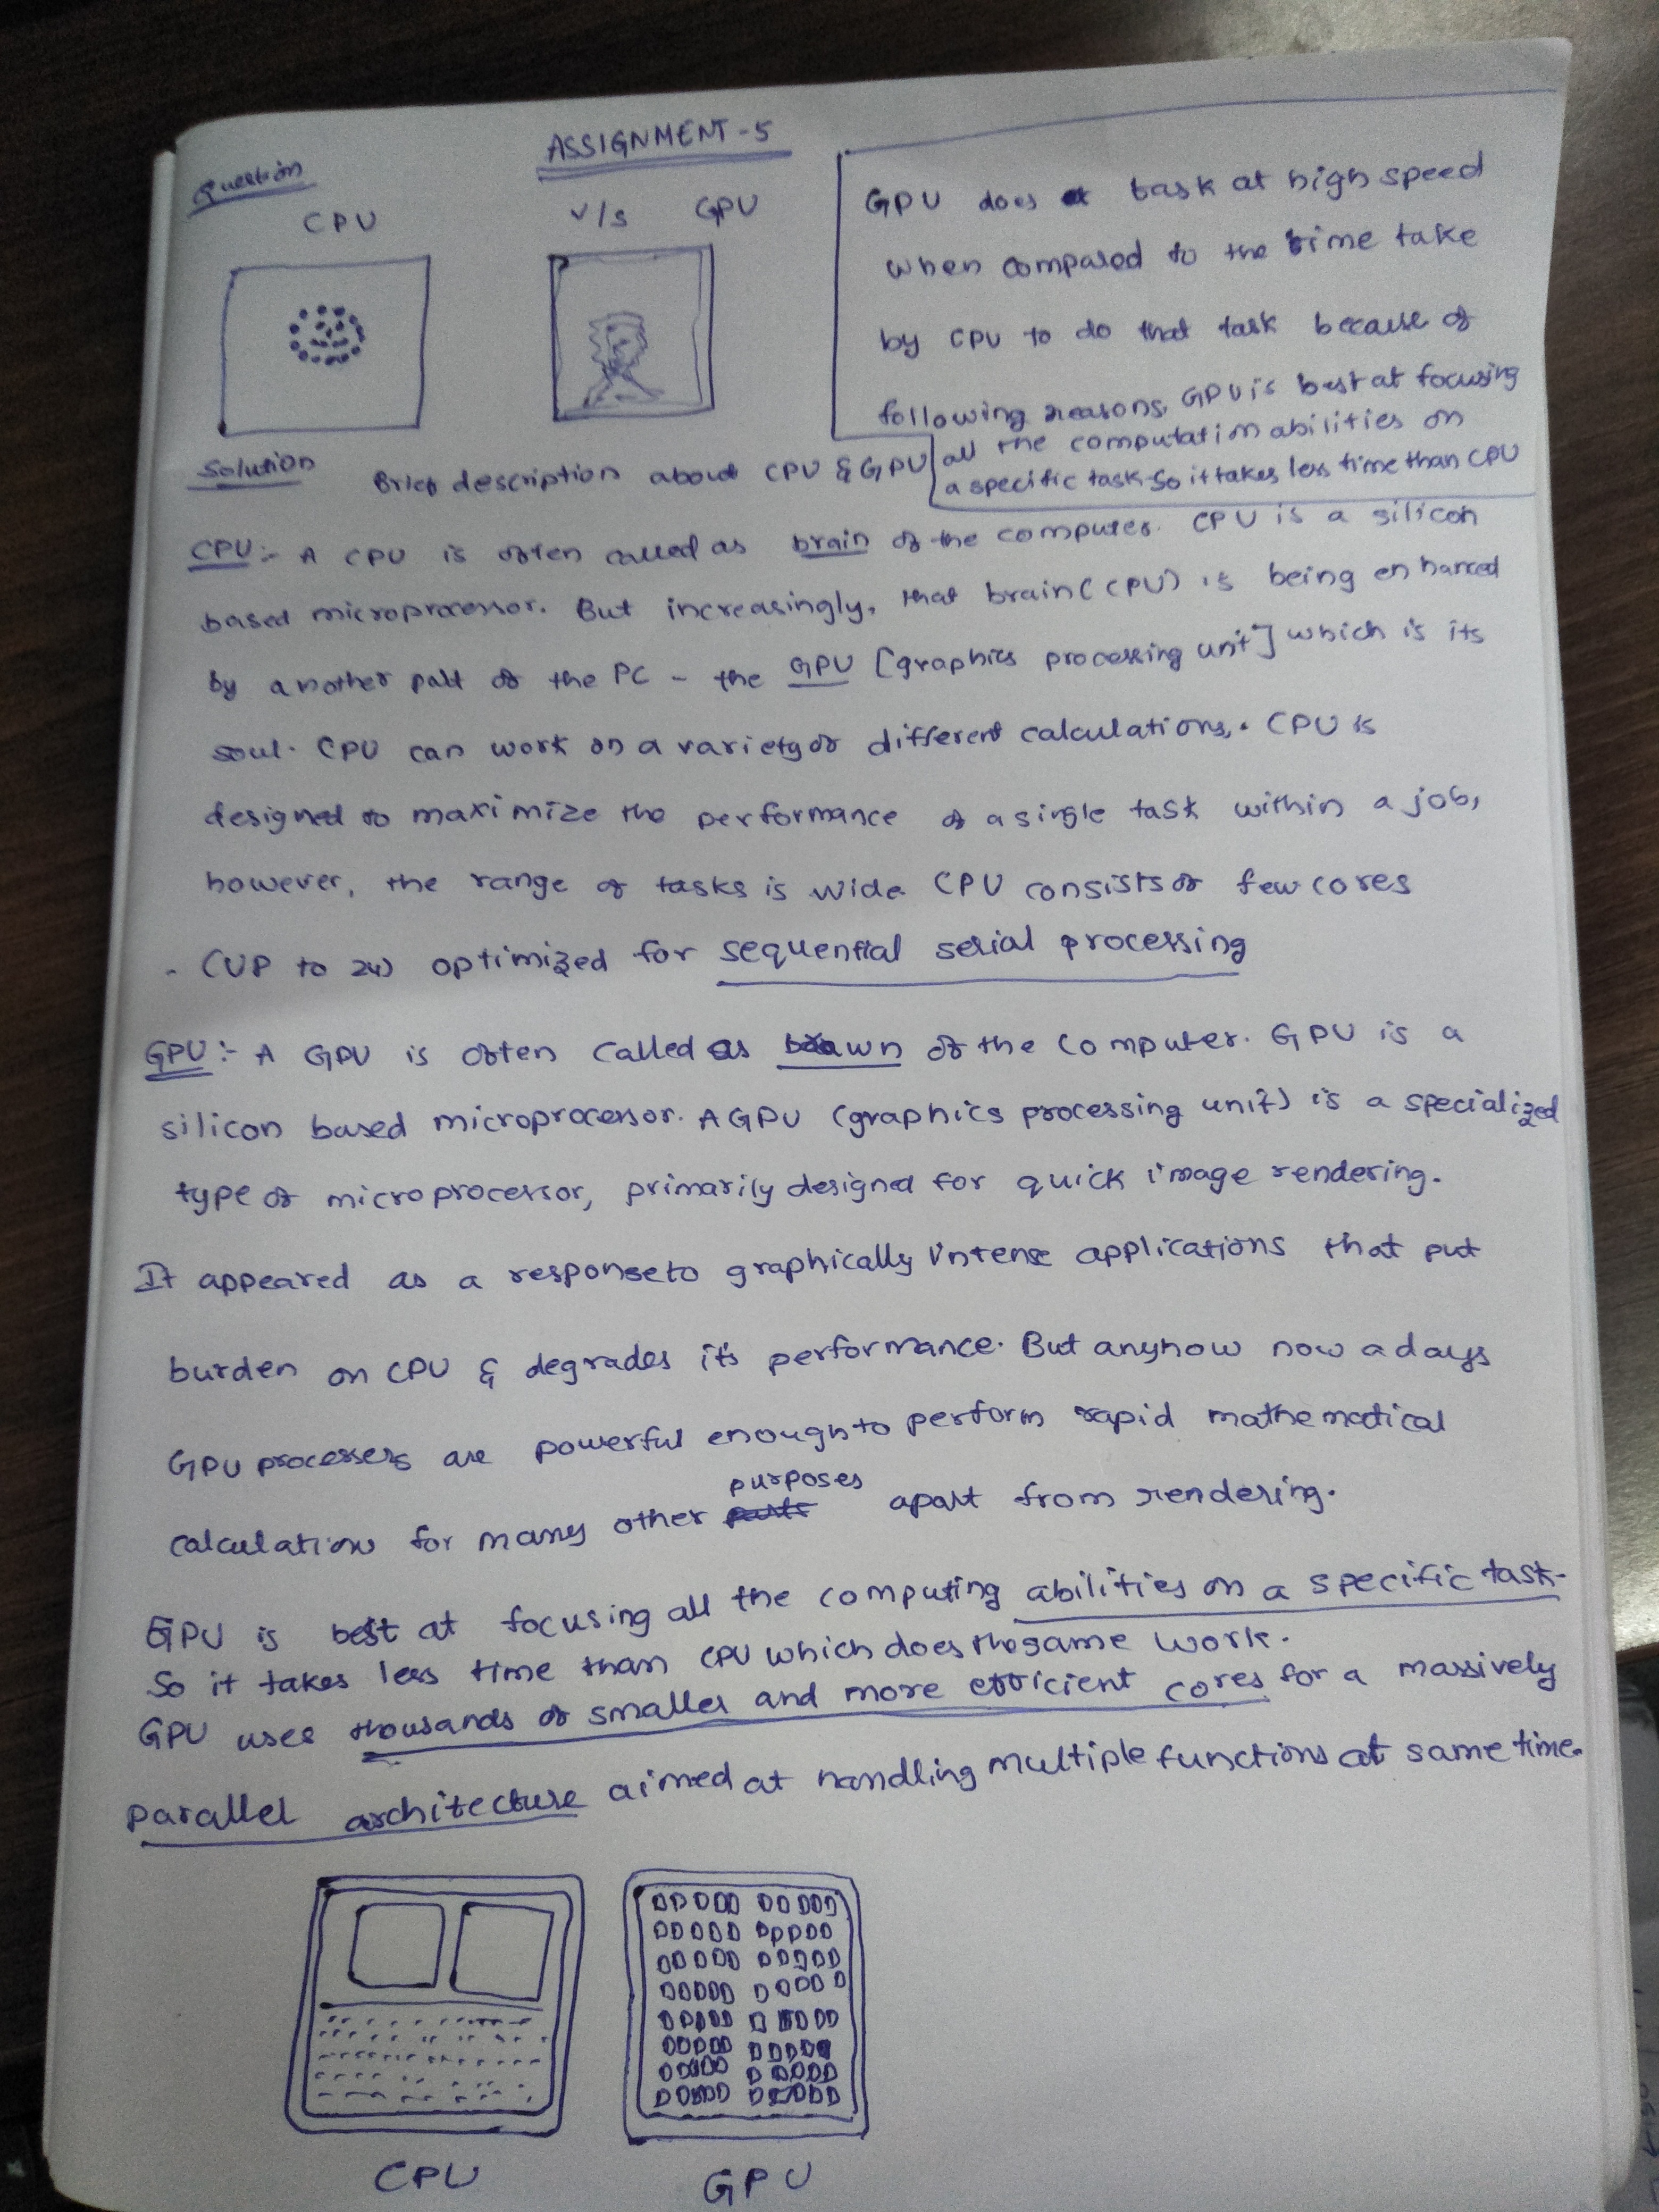 ASSIGNMENT-5
Question
CPU v/s GPU
GPU does a task at high speed
when compared to the time take
by CPU to do that task because of
following reasons, GPU is best at focusing
all the computation abilities on
a specific task. So it takes less time than CPU
Solution
Brief description about CPU & GPU
CPU:- A CPU is often called as brain of the computer. CPU is a silicon
based microprocessor. But increasingly, that brain (CPU) is being enhanced
by another part of the PC - the GPU [graphics processing unit] which is its
soul. CPU can work on a variety of different calculations,. CPU is
designed to maximize the performance of a single task within a job,
however, the range of tasks is wide. CPU consists of few cores
(UP to 24) optimized for sequential serial processing
GPU:- A GPU is often called as brawn of the computer. GPU is a
silicon based microprocessor. A GPU (graphics processing unit) is a specialized
type of microprocessor, primarily designed for quick image rendering.
It appeared as a response to graphically intense applications that put
burden on CPU & degrades its performance. But anyhow now a days
GPU processers are powerful enough to perform rapid mathematical
purposes
calculations for many other parts apart from rendering.
GPU is best at focusing all the computing abilities on a specific task.
So it takes less time than CPU which does the same work.
GPU uses thousands of smaller and more efficient cores for a massively
parallel architecture aimed at handling multiple functions at same time.
CPU GPU